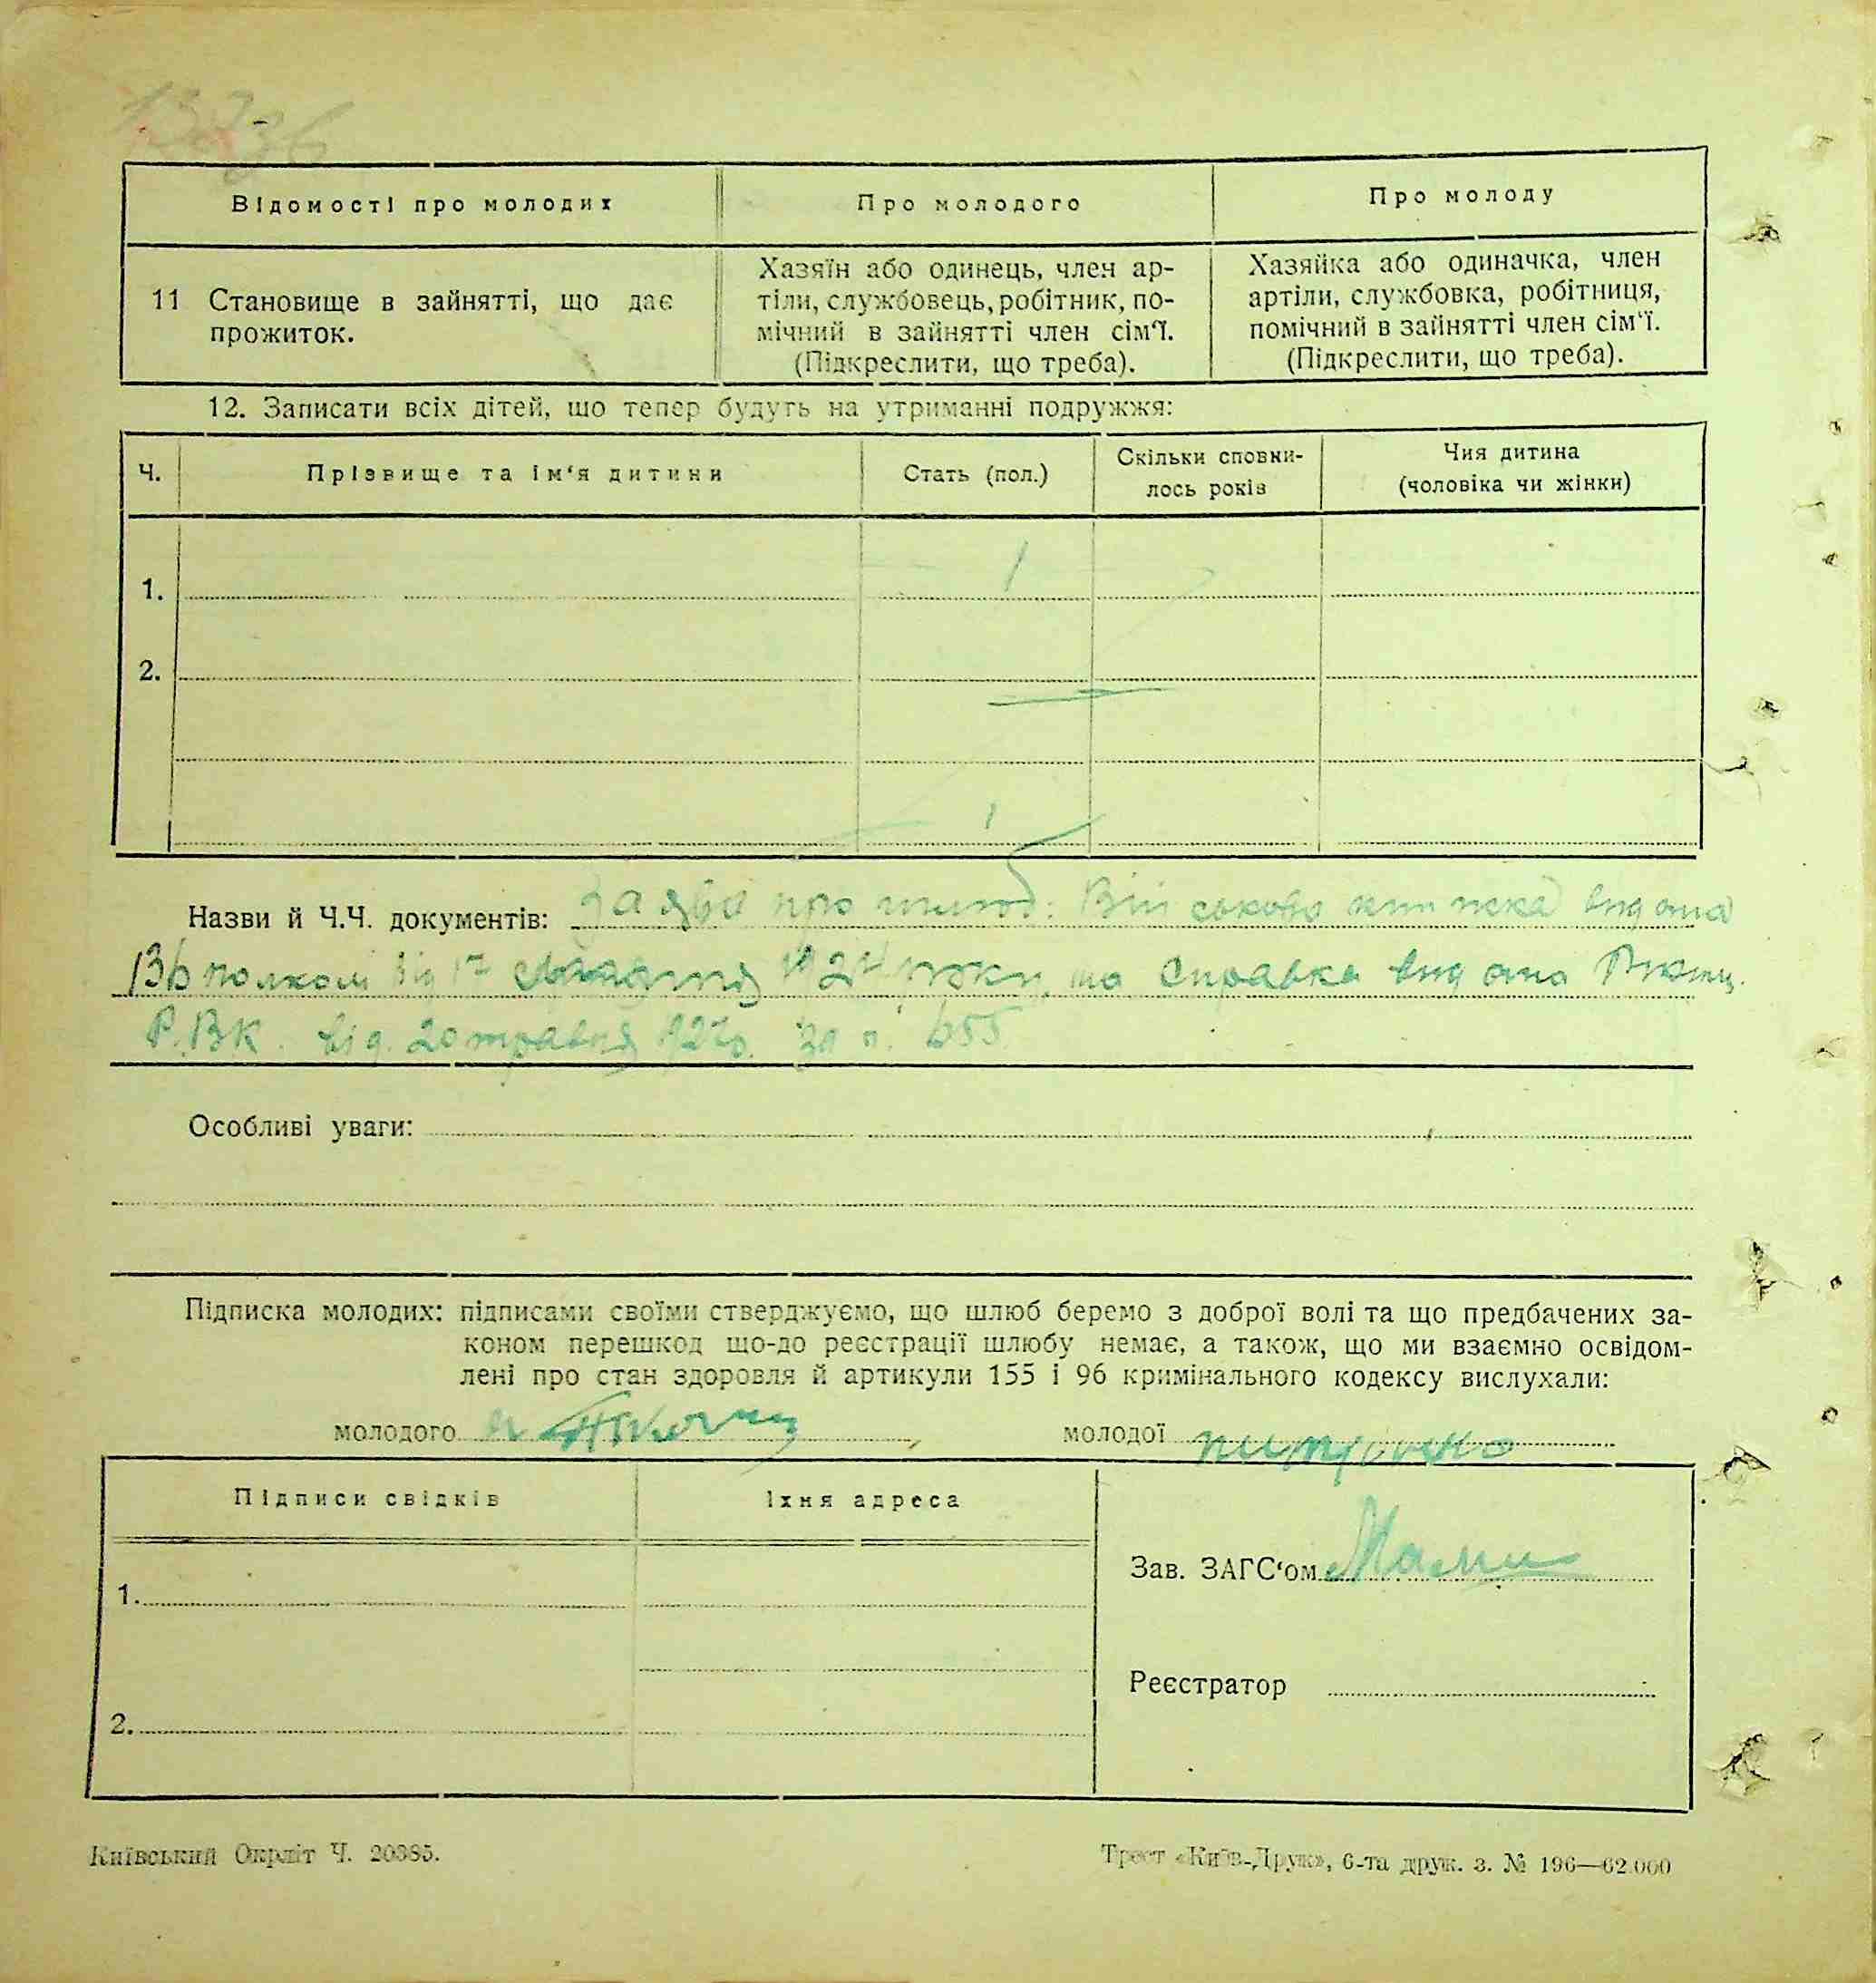 Відомості про молодих
Про молодого
Про молоду
11 Становище в зайнятті, що дає
прожиток.
Хазяїн або одинець, член ар-
тіли, службовець, робітник, по-
мічний в зайнятті член сім‘ї.
(Підкреслити, що треба).
Хазяйка або одиначка, член
артіли, службовка, робітниця,
помічний в зайнятті член сім‘ї.
(Підкреслити, що треба).
12. Записати всіх дітей, що тепер будуть на утриманні подружжя:
Ч.
Прізвище та ім‘я дитини
Стать (пол.)
Скільки сповни-
лось років
Чия дитина
(чоловіка чи жінки)
1.
2.
Назви й Ч.Ч. документів: заява про шлюб: Військова книжка видана
полком від 192 року, та справка видана
Р.В.К. від 20 травня 655
Особливі уваги:
Підписка молодих: підписами своїми стверджуємо, що шлюб беремо з доброї волі та що предбачених за-
коном перешкод що-до реєстрації шлюбу немає, а також, що ми взаємно освідом-
лені про стан здоровля й артикули 155 і 96 кримінального кодексу вислухали:
молодого
молодої
Підписи свідків
Їхня адреса
1.
2.
Зав. ЗАГС‘ом
Реєстратор
Київський Окрліт Ч. 20385.
Трест «Київ-Друк», 6-та друк. з. № 196—62.000